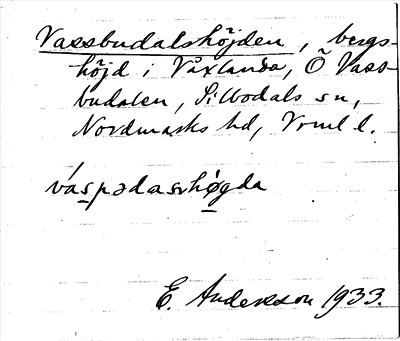 Vassbudalshöjden, bergs-
höjd i Våxlanda, Ö Vass-
budalen, Silbodals sn,
Nordmarks hd, Vrml l.
váspədasrhø̀gda
E. Andersson 1933.